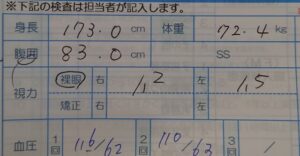 ※下記の検査は担当者が記入します。
身長 173.0 cm 体重 72.4 kg
腹囲 83.0 cm SS
視力 裸眼 右 1,2 左 1,5
矯正 右 左
血圧 1回 116/62 2回 110/63 3回 /